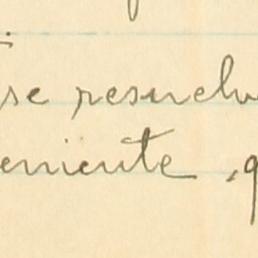 se resuelv
eniente, q